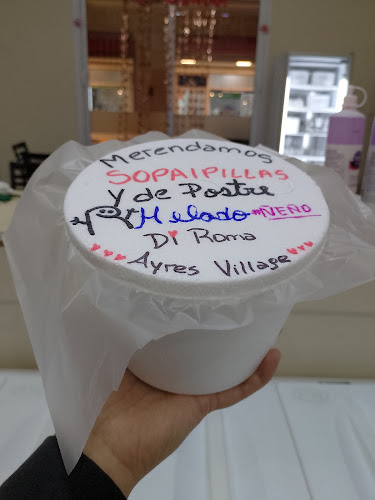 Merendamos
SOPAIPILLAS
y de Postre
Helado mVEÑO
Di Roma
Ayres Village